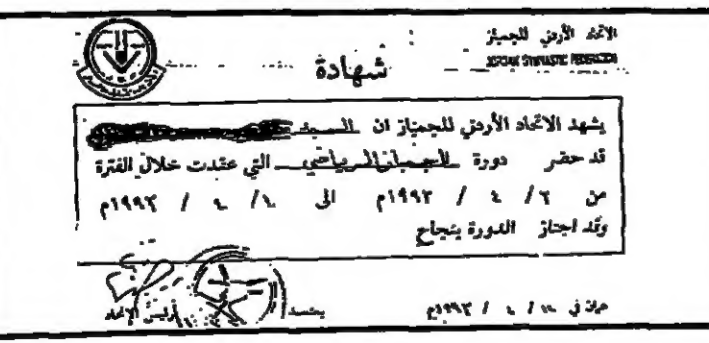 الاتحاد الأردني للجمباز
JORDAN GYMNASTIC FEDERATION
شهادة
يشهد الاتحاد الأردني للجمباز ان السيد
قد حضر دورة الجمباز الرياضي التي عقدت خلال الفترة
من ٢ / ٤ / ١٩٩٣م الى / ٤ / ١٩٩٣م
وقد اجتاز الدورة بنجاح
يعتمد رئيس الاتحاد
عمان في / ٤ / ١٩٩٣م